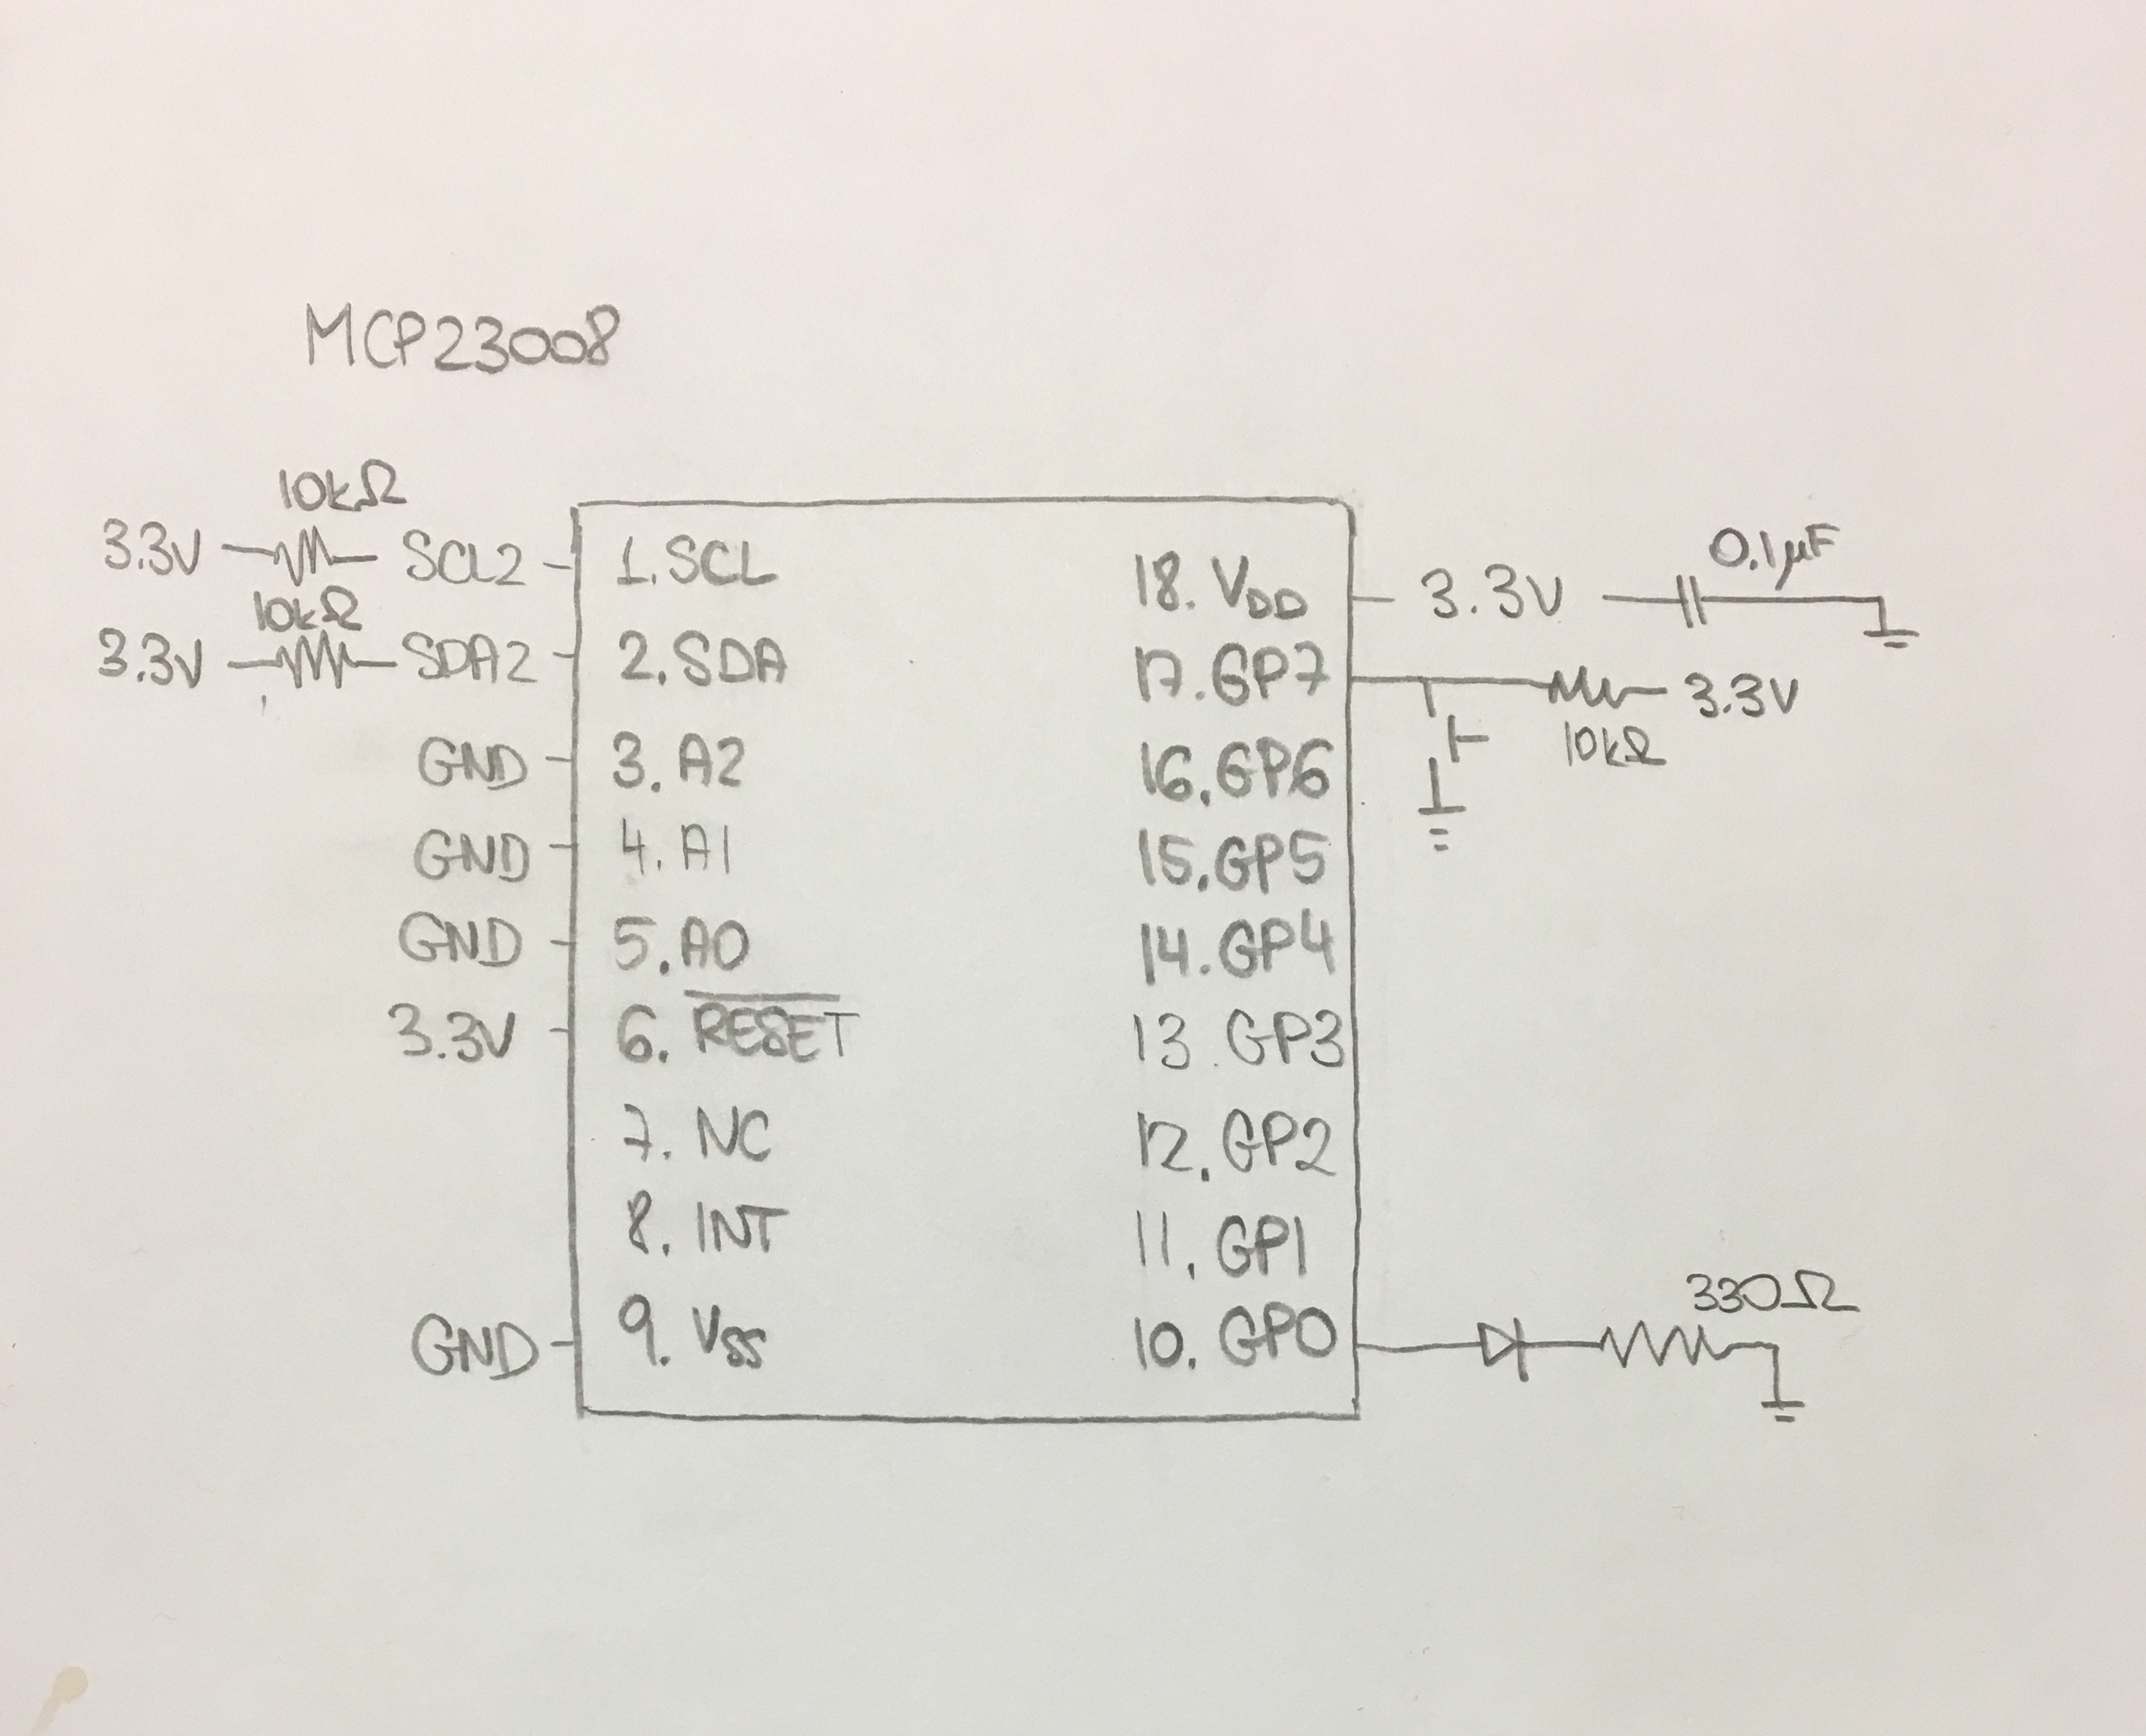 MCP23008
10kΩ
3.3V SCL2 1. SCL
10kΩ
3.3V SDA2 2. SDA
GND 3. A2
GND 4. A1
GND 5. A0
3.3V 6. RESET
7. NC
8. INT
GND 9. VSS
0.1µF
18. VDD 3.3V
17. GP7 3.3V
10kΩ
16. GP6
15. GP5
14. GP4
13. GP3
12. GP2
11. GP1
330Ω
10. GP0